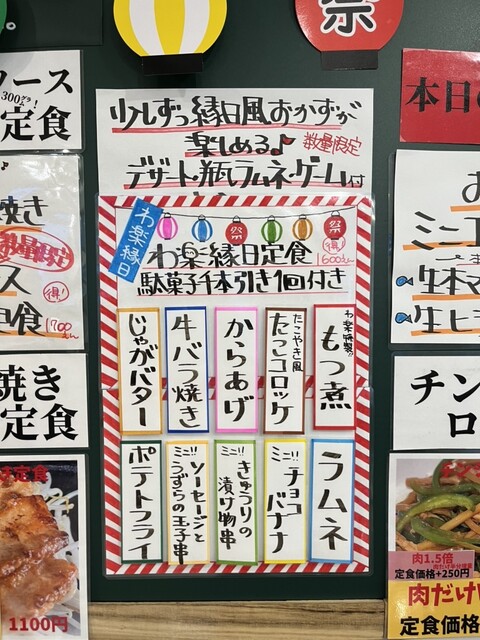 祭
ソース
300グラム!
定食
焼き
数量限定
ス
得!
定食
1700えん
焼き
定食
定食
1100円
少しずつ縁日風おかずが
楽しめる♪
数量限定
デザート・瓶ラムネ・ゲーム付
わ楽縁日
祭
祭
わ楽縁日定食
得
1600えん
駄菓子千本引き1回付き
わ楽特製の
もつ煮
たこやき風
たっコロッケ
からあげ
牛バラ焼き
じゃがバター
ラムネ
ミニ!!
チョコバナナ
ミニ!!
きゅうりの漬け物串
ミニ!!
ソーセージとうずらの玉子串
ポテトフライ
本日の
お
ミニ
生本マ
生レ
チン
ロ
肉1.5倍
定食価格+250円
肉だけ
定食価格